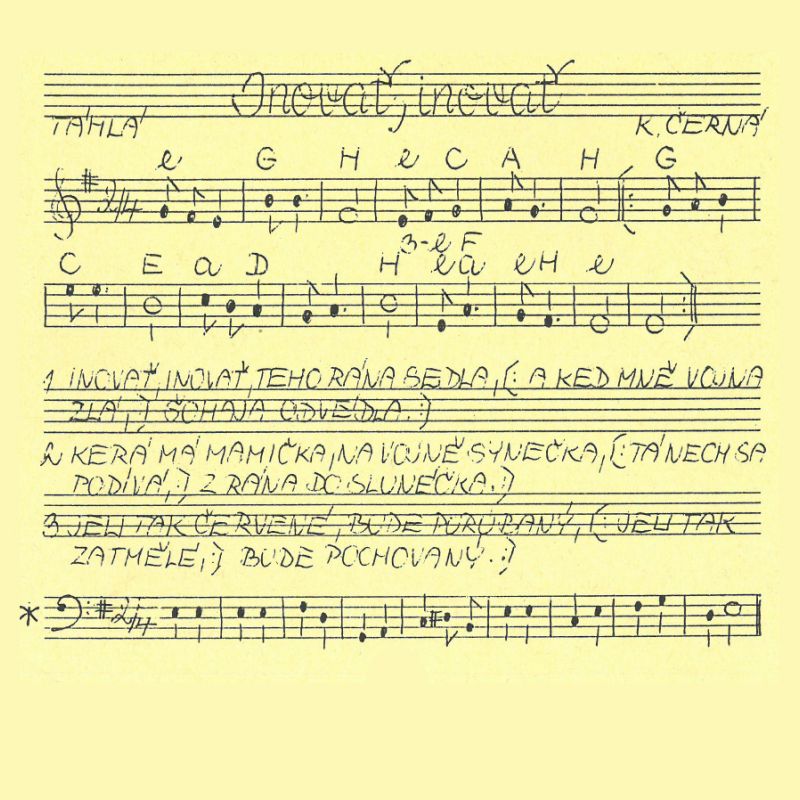 Inovať, inovať
TÁHLÁ K. ČERNÁ
e G H e C A H G
3-e F
C E a D H e a e H e
1 INOVAŤ, INOVAŤ, TEHO RÁNA SEDLA, (: A KED MNĚ VOJNA
ZLÁ, :) ŠOHAJA ODVÉDLA. :)
2 KERÁ MÁ MAMIČKA, NA VOJNĚ SYNEČKA, (: TÁ NECH SA
PODÍVÁ, :) Z RÁNA DO SLUNÉČKA. :)
3 JELI TAK ČERVENÉ, BUDE PORÚBANÝ, (: JELI TAK
ZATMĚLÉ, :) BUDE POCHOVANÝ. :)
* 2/4